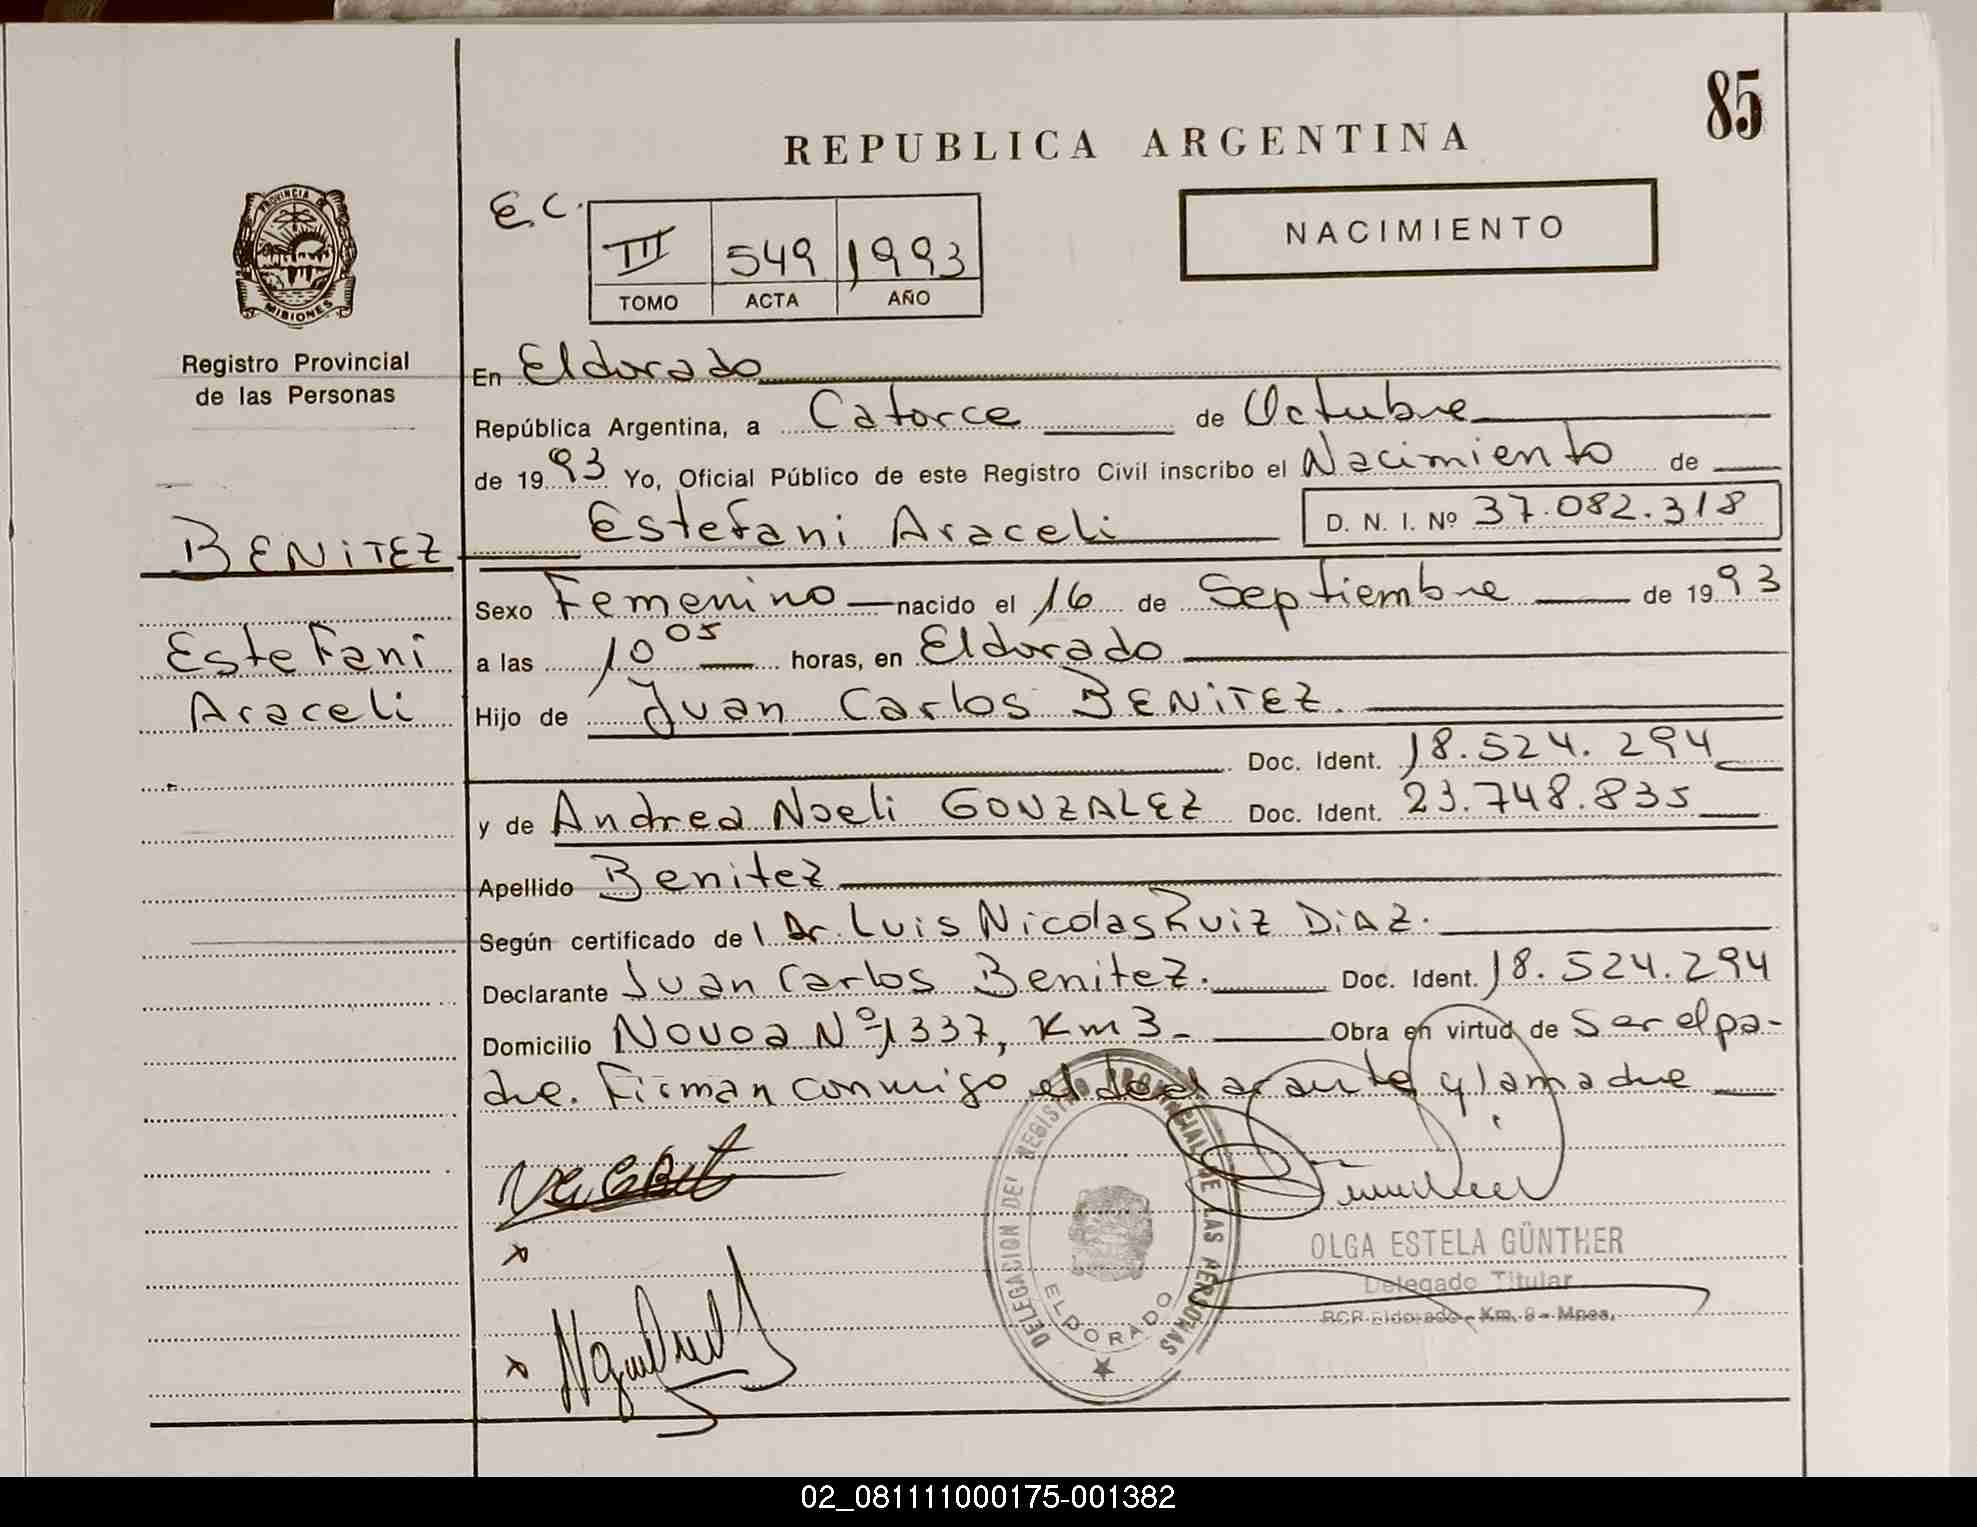 85
REPUBLICA ARGENTINA
PROVINCIA DE
MISIONES
Registro Provincial
de las Personas
E.C.
III 549 1993
TOMO ACTA AÑO
NACIMIENTO
En Eldorado
República Argentina, a Catorce de Octubre
de 1993 Yo, Oficial Público de este Registro Civil inscribo el Nacimiento de
Estefani Araceli D. N. I. Nº 37.082.318
BENITEZ
Estefani
Araceli
Sexo Femenino nacido el 16 de Septiembre de 1993
a las 10 05 horas, en Eldorado
Hijo de Juan Carlos BENITEZ.
Doc. Ident. 18.524.294
y de Andrea Noeli GONZALEZ Doc. Ident. 23.748.835
Apellido Benitez
Según certificado de l Dr. Luis Nicolas Ruiz DiAZ.
Declarante Juan Carlos Benitez. Doc. Ident. 18.524.294
Domicilio Novoa Nº 1337, Km 3- Obra en virtud de Ser el pa-
dre. Firman conmigo el declarante y la madre
DELEGACION DEL REGISTRO PROVINCIAL DE LAS PERSONAS
ELDORADO
OLGA ESTELA GÜNTHER
Delegado Titular
RCP Eldorado - Km. 9 - Mnes.
02_081111000175-001382